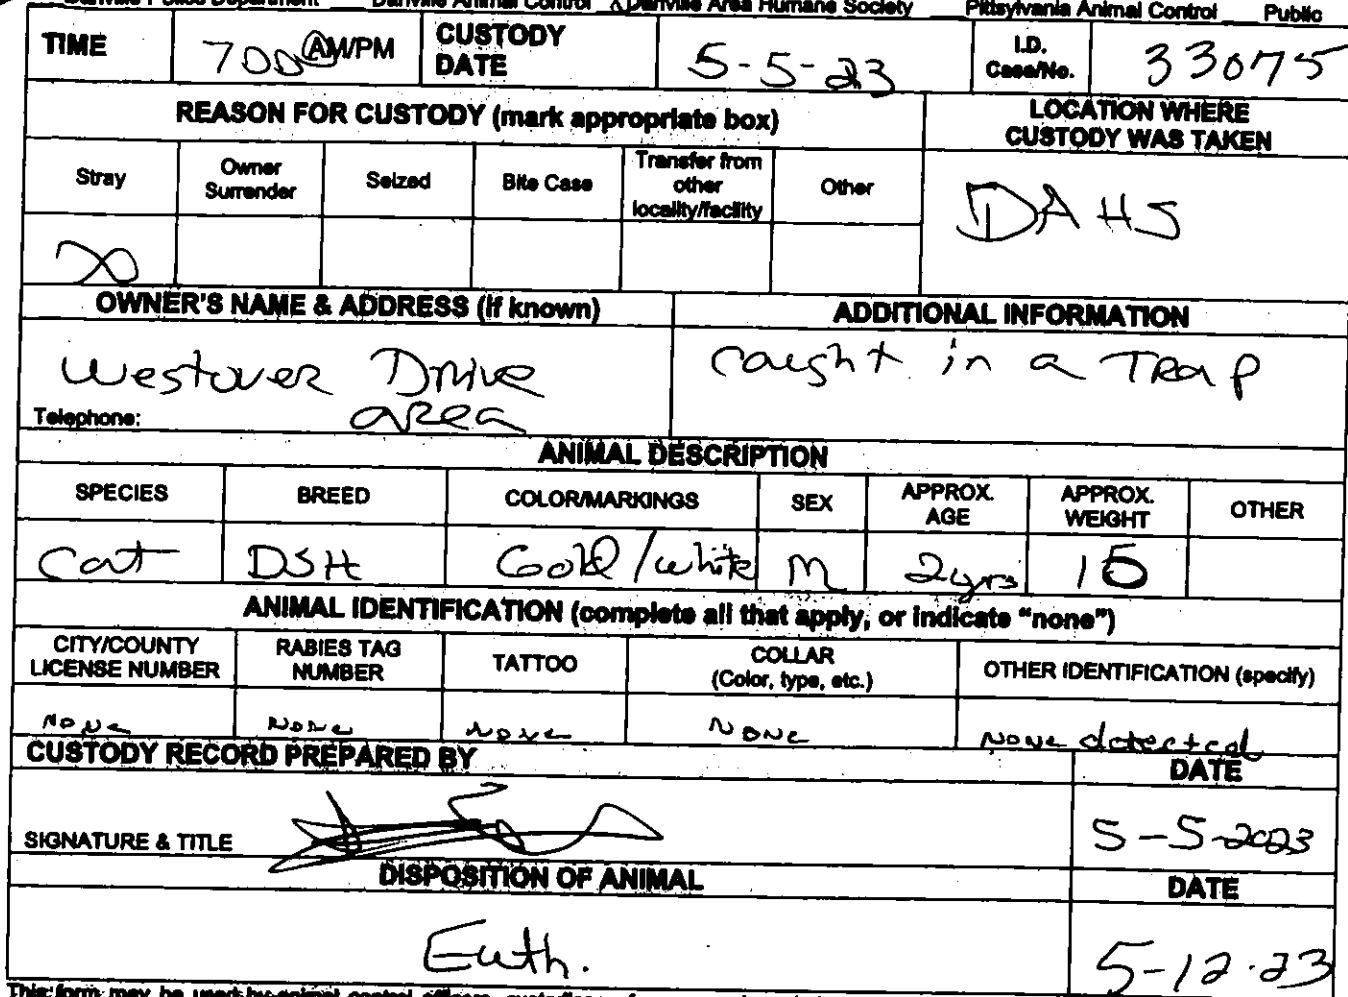 Danville Police Department Danville Animal Control X Danville Area Humane Society Pittsylvania Animal Control Public
TIME 700 AM/PM CUSTODY DATE 5-5-23 I.D. Case/No. 33075
REASON FOR CUSTODY (mark appropriate box) LOCATION WHERE CUSTODY WAS TAKEN
Stray Owner Surrender Seized Bite Case Transfer from other locality/facility Other DAHS
X
OWNER'S NAME & ADDRESS (if known) ADDITIONAL INFORMATION
Westover Drive caught in a TRap
Telephone: aRea
ANIMAL DESCRIPTION
SPECIES BREED COLOR/MARKINGS SEX APPROX. AGE APPROX. WEIGHT OTHER
Cat DSH Gold/white M 2yrs 15
ANIMAL IDENTIFICATION (complete all that apply, or indicate "none")
CITY/COUNTY LICENSE NUMBER RABIES TAG NUMBER TATTOO COLLAR (Color, type, etc.) OTHER IDENTIFICATION (specify)
None None None None None detected
CUSTODY RECORD PREPARED BY DATE
SIGNATURE & TITLE 5-5-2023
DISPOSITION OF ANIMAL DATE
Euth. 5-12-23
This form may be used by animal control officers,